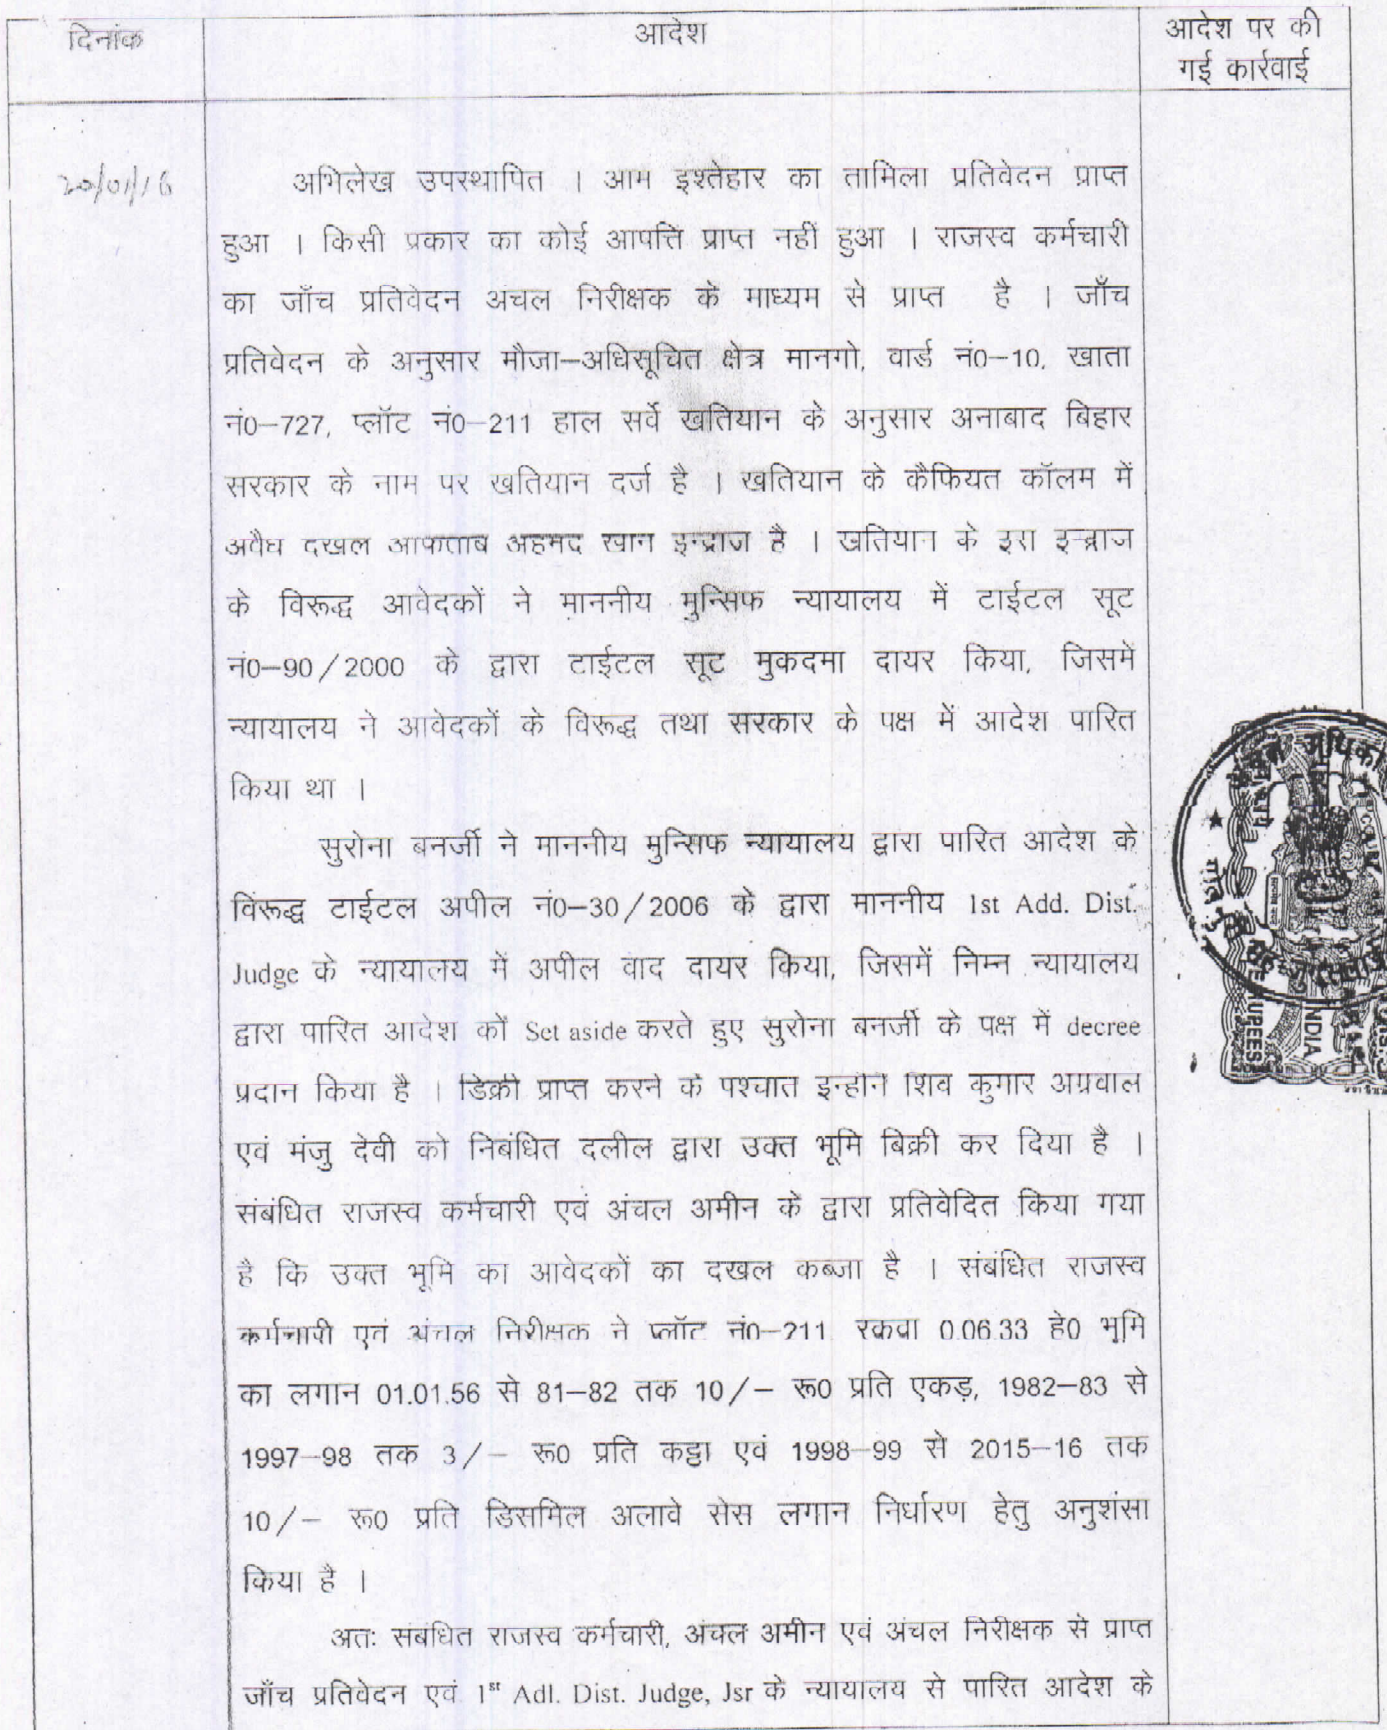 दिनांक
आदेश
आदेश पर की
गई कार्रवाई
20/01/16
अभिलेख उपस्थापित । आम इश्तेहार का तामिला प्रतिवेदन प्राप्त
हुआ । किसी प्रकार का कोई आपत्ति प्राप्त नहीं हुआ । राजस्व कर्मचारी
का जाँच प्रतिवेदन अंचल निरीक्षक के माध्यम से प्राप्त है । जाँच
प्रतिवेदन के अनुसार मौजा–अधिसूचित क्षेत्र मानगो, वार्ड नं0–10, खाता
नं0–727, प्लॉट नं0–211 हाल सर्वे खतियान के अनुसार अनाबाद बिहार
सरकार के नाम पर खतियान दर्ज है । खतियान के कैफियत कॉलम में
अवैध दखल आफताब अहमद खान इन्द्राज है । खतियान के इस इन्द्राज
के विरूद्ध आवेदकों ने माननीय मुन्सिफ न्यायालय में टाईटल सूट
नं0–90/2000 के द्वारा टाईटल सूट मुकदमा दायर किया, जिसमें
न्यायालय ने आवेदकों के विरूद्ध तथा सरकार के पक्ष में आदेश पारित
किया था ।
सुरोना बनर्जी ने माननीय मुन्सिफ न्यायालय द्वारा पारित आदेश के
विरूद्ध टाईटल अपील नं0–30/2006 के द्वारा माननीय 1st Add. Dist.
Judge के न्यायालय में अपील वाद दायर किया, जिसमें निम्न न्यायालय
द्वारा पारित आदेश कों Set aside करते हुए सुरोना बनर्जी के पक्ष में decree
प्रदान किया है । डिक्री प्राप्त करने के पश्चात इन्होने शिव कुमार अग्रवाल
एवं मंजु देवी को निबंधित दलील द्वारा उक्त भूमि बिक्री कर दिया है ।
संबंधित राजस्व कर्मचारी एवं अंचल अमीन के द्वारा प्रतिवेदित किया गया
है कि उक्त भूमि का आवेदकों का दखल कब्जा है । संबंधित राजस्व
कर्मचारी एवं अंचल निरीक्षक ने प्लॉट नं0–211 रकवा 0.06.33 हे0 भूमि
का लगान 01.01.56 से 81–82 तक 10/– रू0 प्रति एकड़, 1982–83 से
1997–98 तक 3/– रू0 प्रति कट्ठा एवं 1998–99 से 2015–16 तक
10/– रू0 प्रति डिसमिल अलावे सेस लगान निर्धारण हेतु अनुशंसा
किया है ।
अतः संबंधित राजस्व कर्मचारी, अंचल अमीन एवं अंचल निरीक्षक से प्राप्त
जाँच प्रतिवेदन एवं 1st Adl. Dist. Judge, Jsr के न्यायालय से पारित आदेश के
RUPEES
INDIA